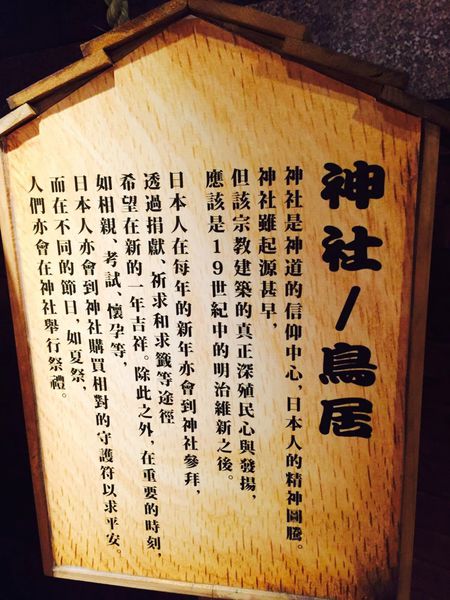 神社/鳥居
神社是神道的信仰中心，日本人的精神圖騰。
神社雖起源甚早，
但該宗教建築的真正深殖民心與發揚，
應該是19世紀中的明治維新之後。
日本人在每年的新年亦會到神社參拜，
透過捐獻、祈求和求籤等途徑
希望在新的一年吉祥。除此之外，在重要的時刻，
如相親、考試、懷孕等，
日本人亦會到神社購買相對的守護符以求平安。
而在不同的節日，如夏祭，
人們亦會在神社舉行祭禮。